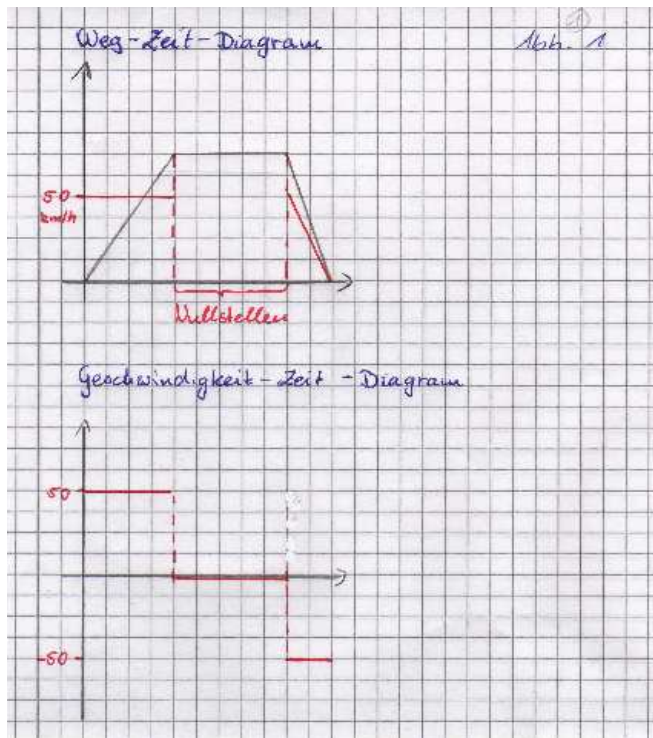 ①
Weg-Zeit-Diagram Abb. 1
50
km/h
Nullstellen
Geschwindigkeit-Zeit-Diagram
50
-50